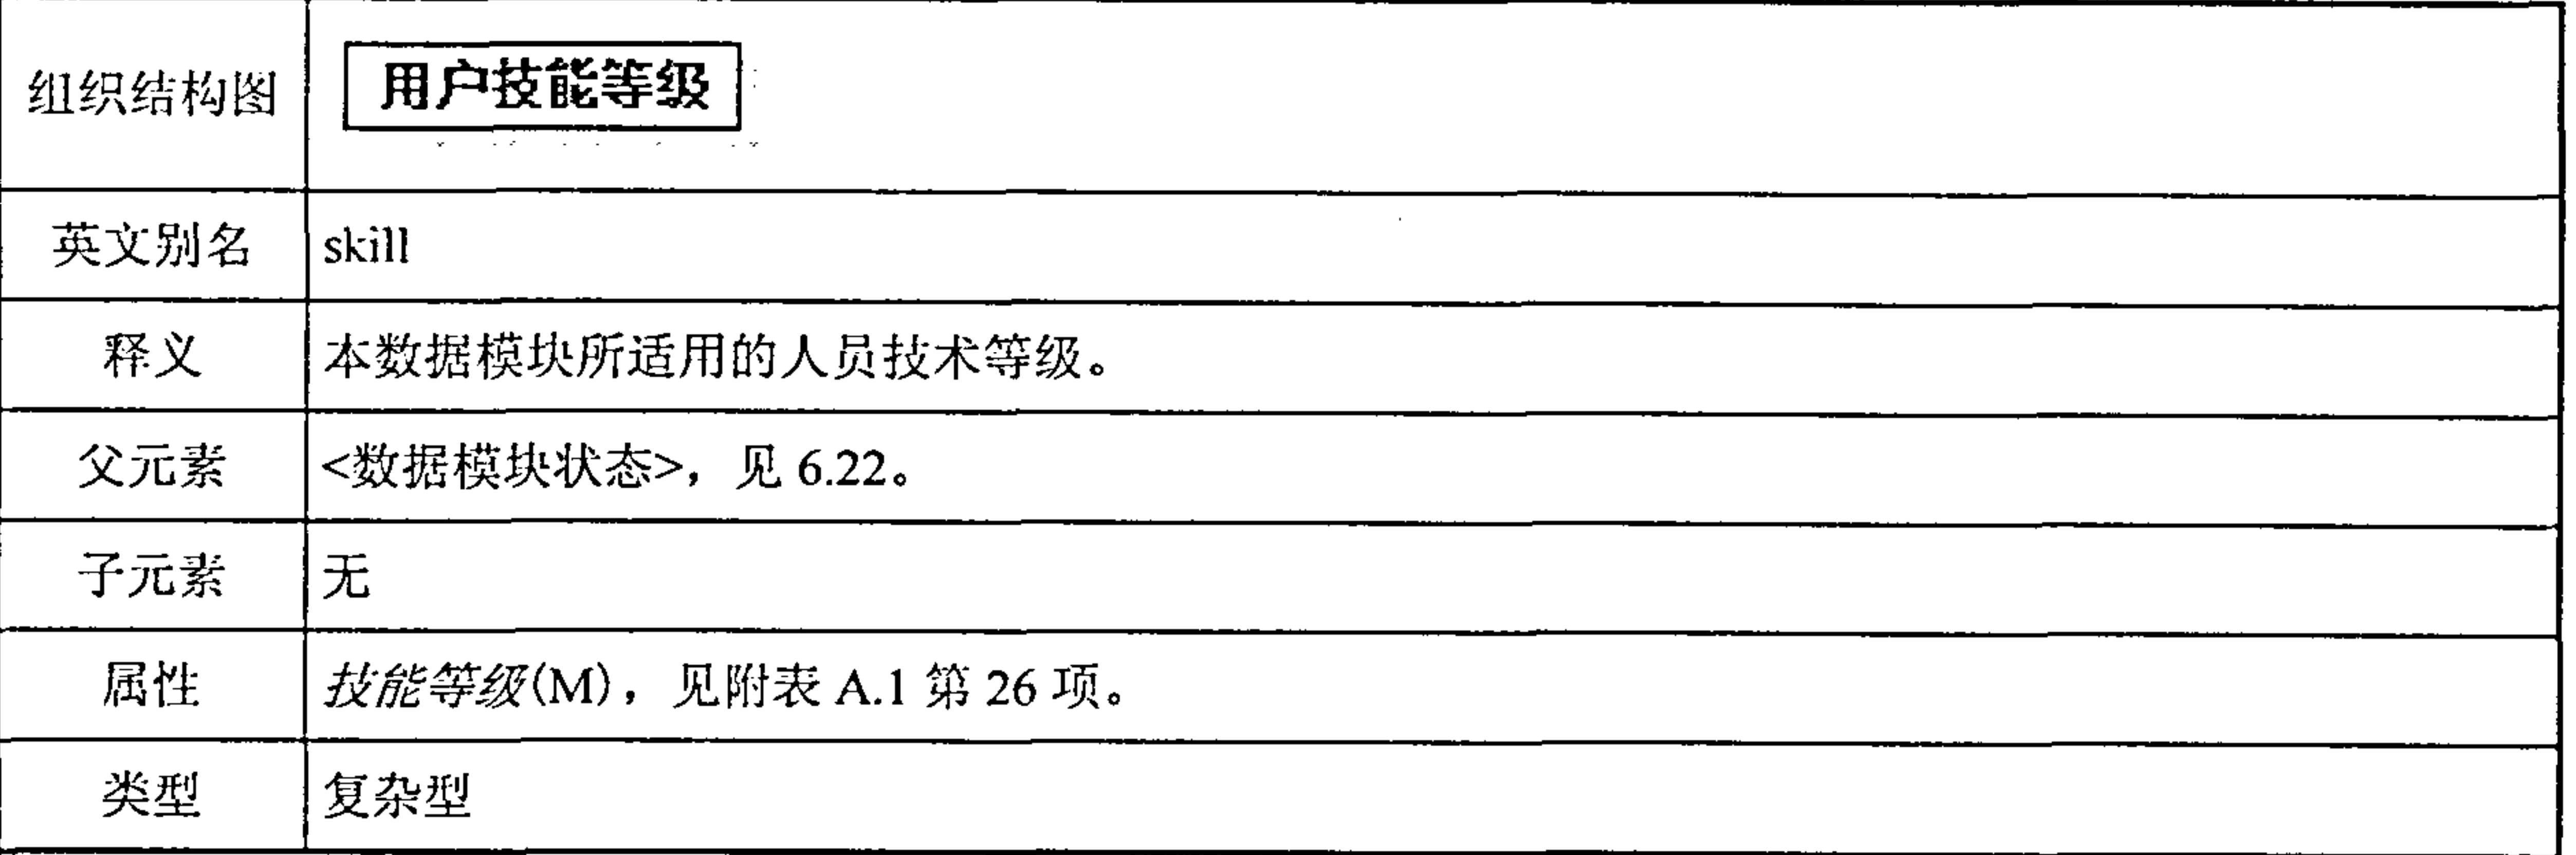 组织结构图 用户技能等级
英文别名 skill
释义 本数据模块所适用的人员技术等级。
父元素 <数据模块状态>，见 6.22。
子元素 无
属性 技能等级(M)，见附表 A.1 第 26 项。
类型 复杂型